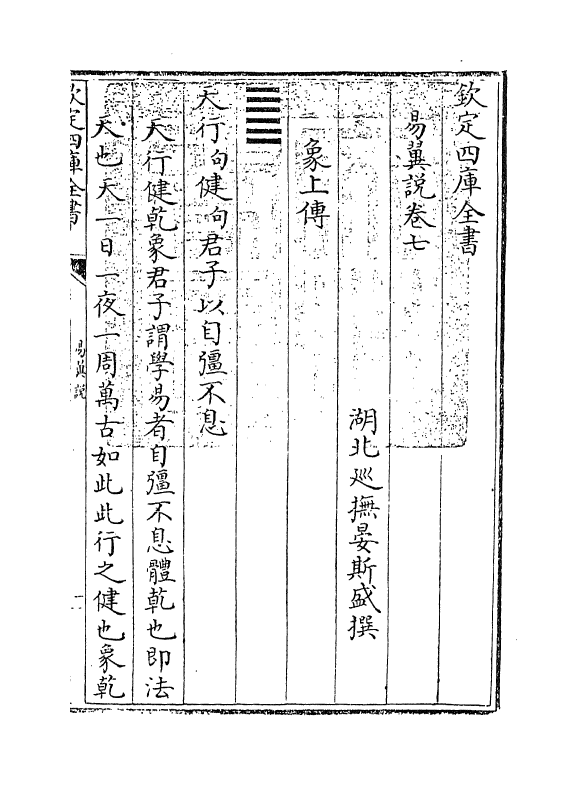 欽定四庫全書
易翼説卷七
湖北巡撫晏斯盛撰
象上傳
天行句健句君子以自彊不息
天行健乾象君子謂學易者自彊不息體乾也即法
天也天一日一夜一周萬古如此此行之健也象乾
欽定四庫全書
易翼説